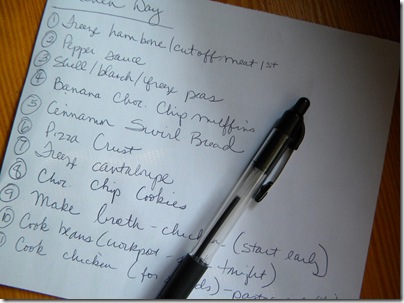 Day
① Freeze hambone/cut off meat 1st
② Pepper sauce
③ Shell/blanch/freeze peas
④ Banana Choc. Chip muffins
⑤ Cinnamon Swirl Bread
⑥ Pizza Crust
⑦ Freeze cantalope
⑧ Choc Chip Cookies
⑨ Make broth - chicken (start early)
⑩ Cook beans (crockpot - tonight)
Cook chicken (for